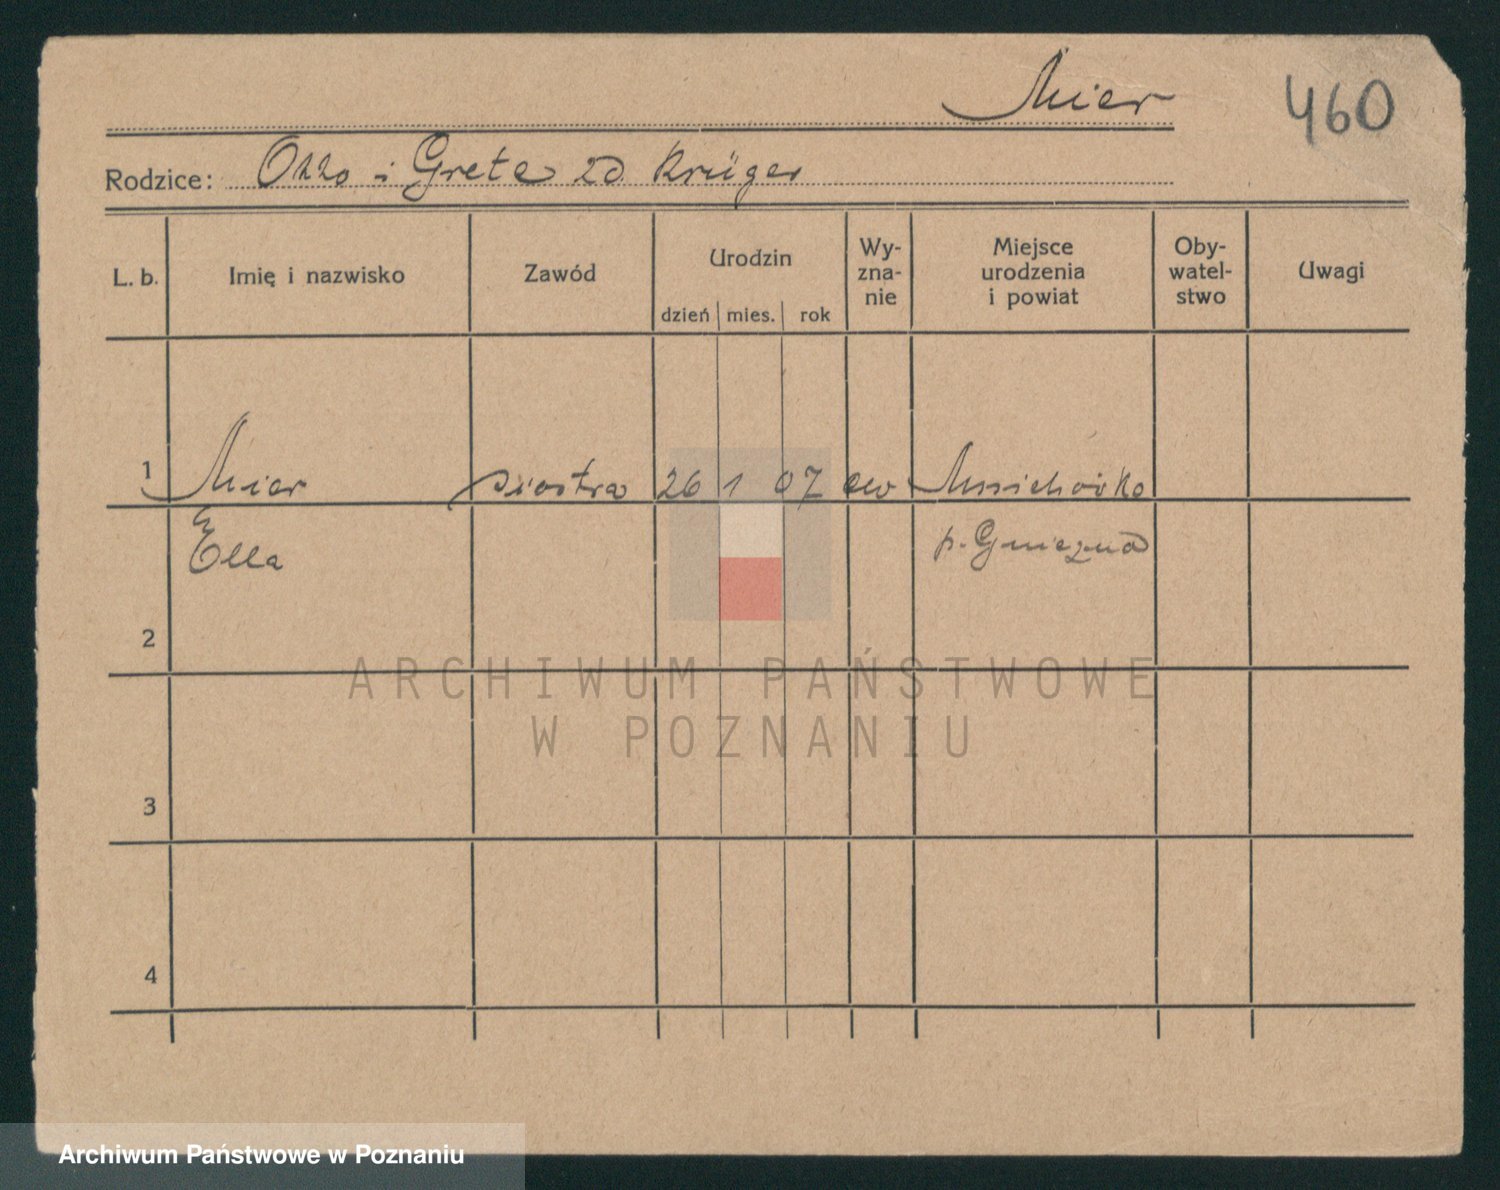 Mier
460
Rodzice: Otto i Grete zd Krüger
L. b. Imię i nazwisko Zawód Urodzin dzień mies. rok Wy-zna-nie Miejsce urodzenia i powiat Oby-watel-stwo Uwagi
1 Mier siostra 26 1 07 ew Mnichówko
Ella p. Gniezno
2
3
4
ARCHIWUM PAŃSTWOWE
W POZNANIU
Archiwum Państwowe w Poznaniu